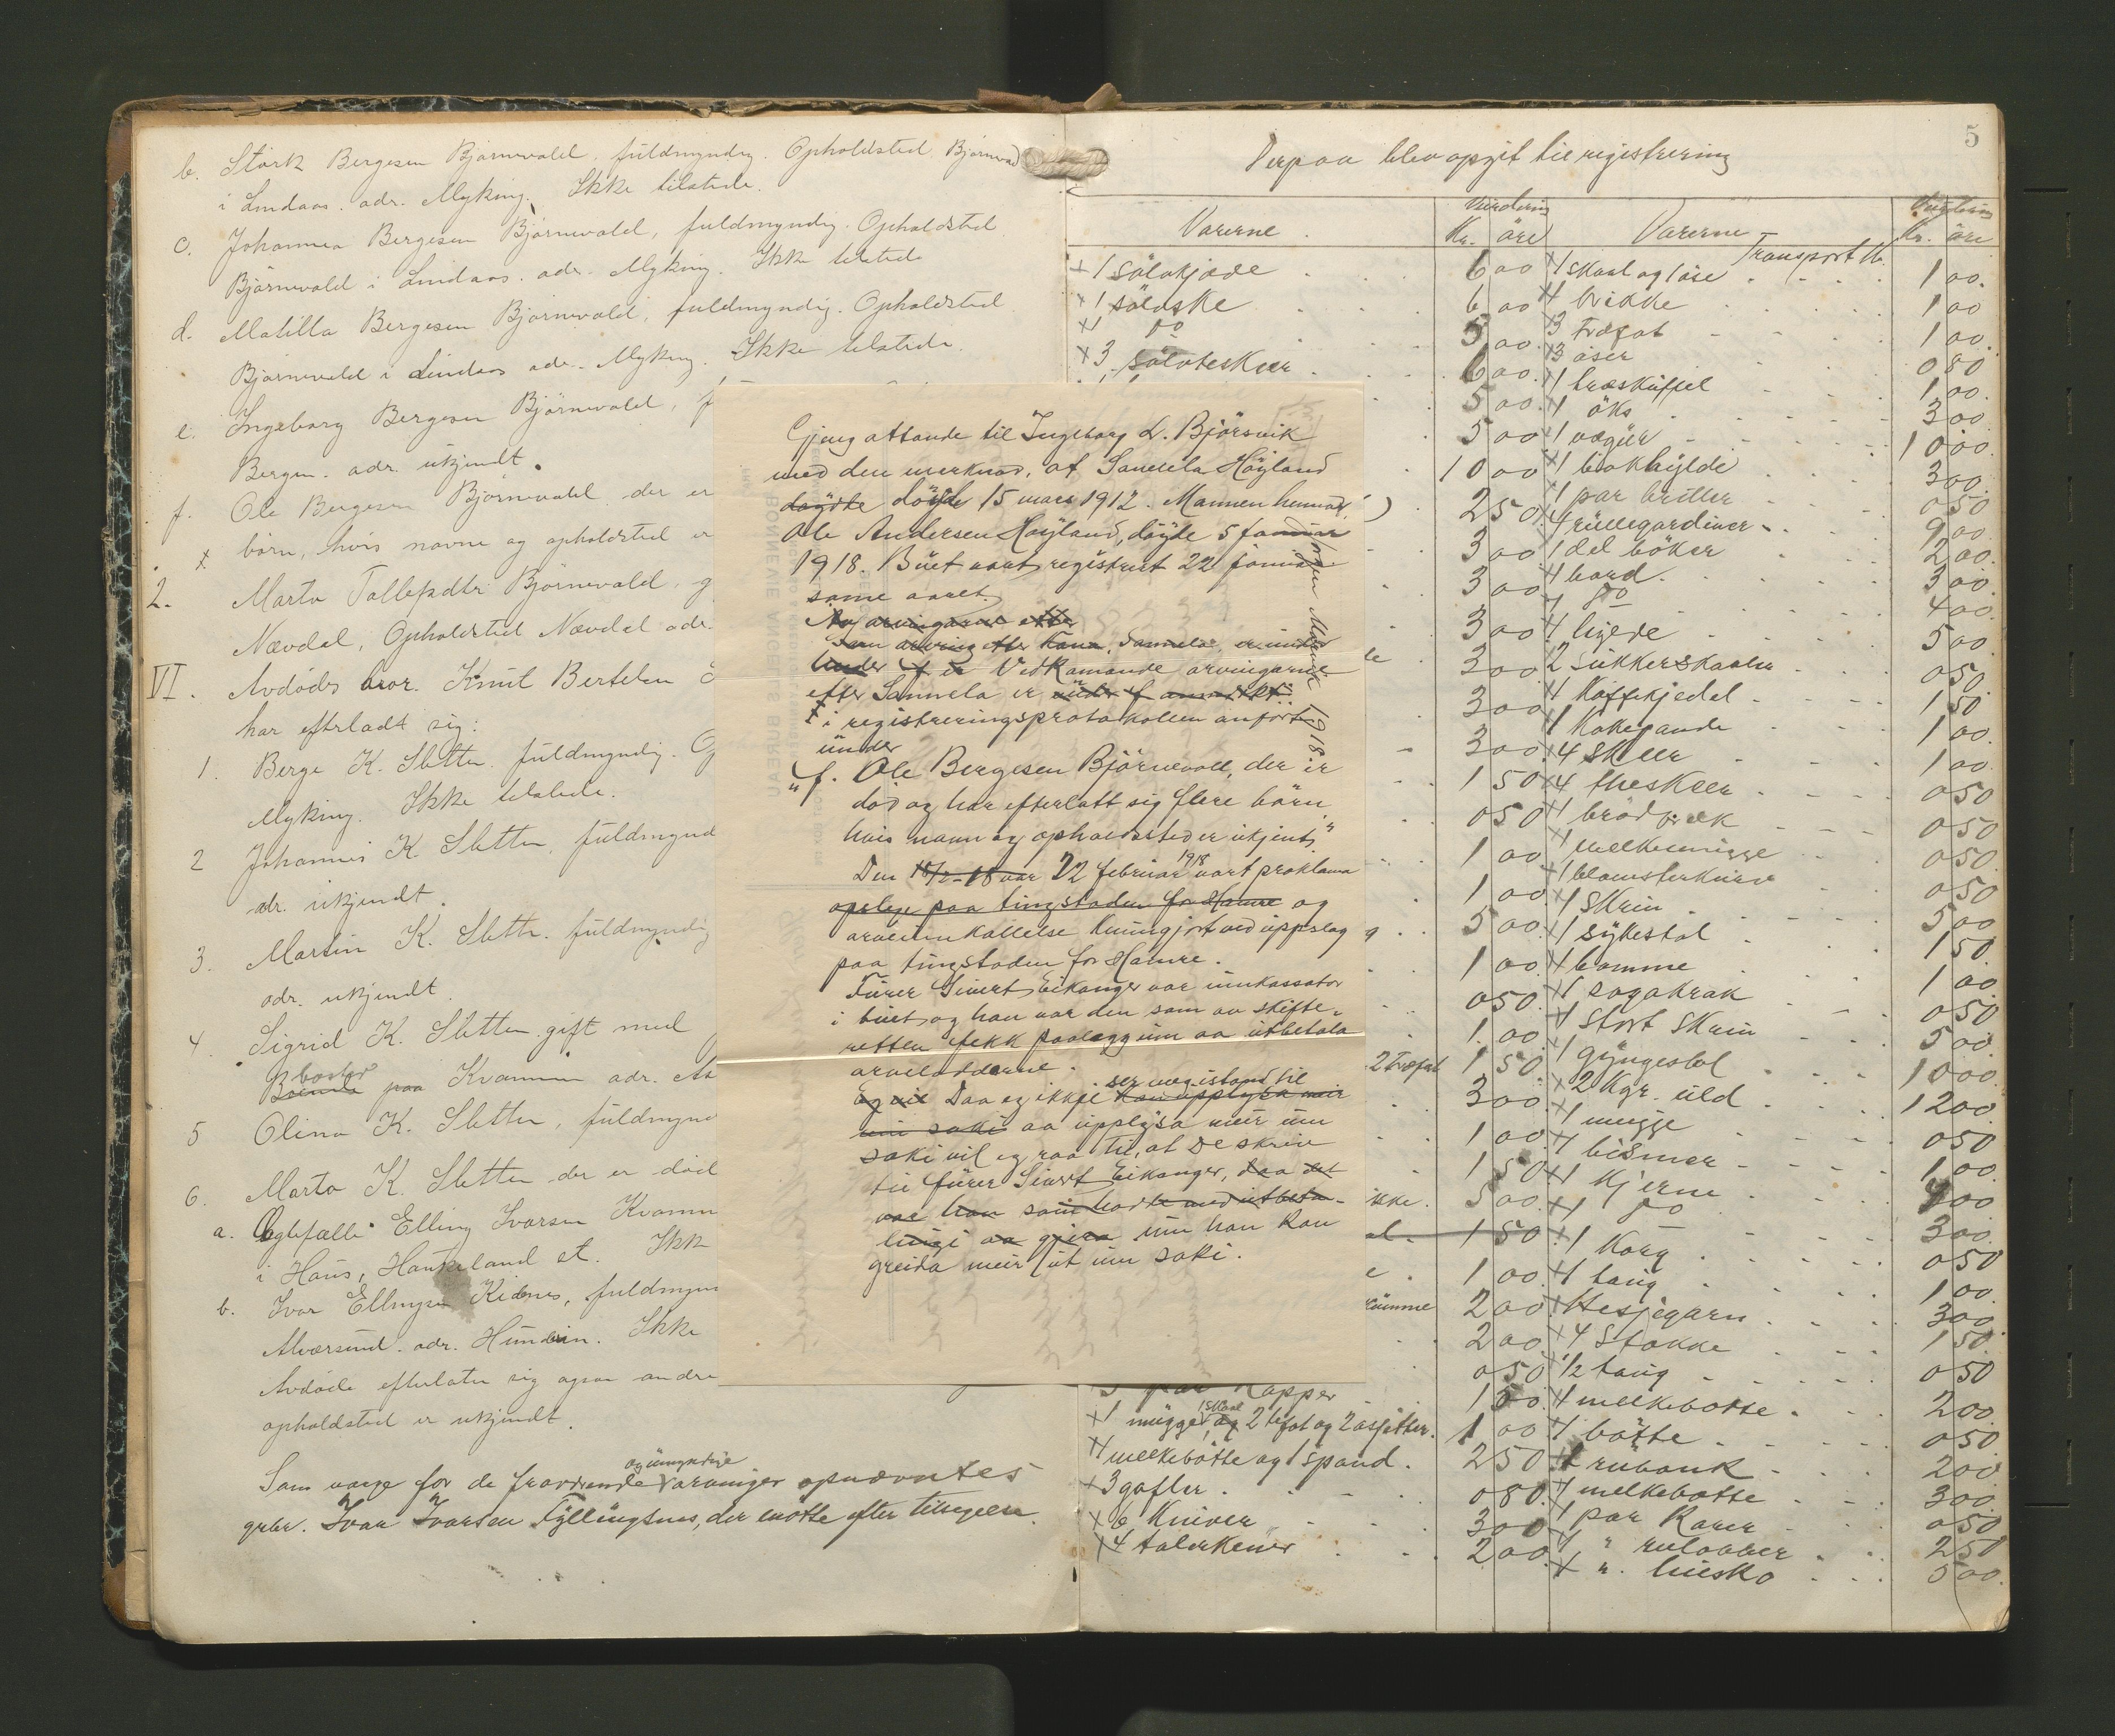 b. Störk Bergesen Bjørnevold. fuldmyndig. Opholdsted Bjørnevold
i Lindaas. adr. Myking. Ikke tilstede.
c. Johannea Bergesen Bjørnevold, fuldmyndig. Opholdsted
Bjørnevold i Lindaas. adr. Myking. Ikke tilstede
d. Matilla Bergesen Bjørnevold, fuldmyndig. Opholdsted
Bjørnevold i Lindaas adr. Myking. Ikke tilstede.
e. Ingeborg Bergesen Bjørnevold, f
Bergen. adr. ukjendt.
f. Ole Bergesen Bjørnevold der er
x børn, hvis navne og opholdsted er
2. Marta Tollefsdtr Bjørnevold, g
Nævdal, Opholdsted Nævdal adr.
VI. Avdødes bror. Knut Bertelsen S
har efterladt sig:
1. Berge K. Sletten. fuldmyndig. Op
Myking. Ikke tilstede.
2 Johannes K. Sletten, fuldmynd
adr. ukjendt.
3. Martin K. Sletten. fuldmyndig
adr. ukjendt.
4. Sigrid K. Sletten gift med
bosted
paa Kvamme adr.
5 Olina K. Sletten, fuldmynd
6. Marta K. Sletten der er død
a. Egtefælle Elling Ivarsen Kvamm
i Haus, Haukeland st. Ikk
b. Ivar Ellingsen Kidnes, fuldmyn
Alversund. adr. Hundvin. Ikke
Avdøde efterlater sig ogsaa andre
opholdsted er ukjendt.
og umyndige
Som verge for de fraværende arvinger opnævntes
grbr. Ivar Ivarsen Fyllingsnes, der møtte efter tilsigelse.
Gjeng attande til Ingeborg L. Bjørsvik
med den merknad, at Sannela Høyland
døydte døyde 15 mars 1912. Mannen hennar,
Ole Andersen Høyland, døyde 5 januar
1918. Buet vart registrert 22 januar
same aaret.
Av arvingarne etter
Som arving etter kona, Sannela, er under
under f er Vedkomande arvingarne
etter Sannela er under f anmerket:
i registreringsprotokollen anført
under
"f. Ole Bergesen Bjørnevoll, der er
død og har efterlatt sig flere børn
hvis navn og opholdssted er ukjent."
1918
Den 18/2-18 var 22 februar vart proklama
opslege paa tingstaden for Hamre og
arveinnkallelse kunngjort ved uppslag
paa tingstaden for Hamre.
Fürer Sivert Eikanger var innkassator
i buet og han var den som av skifte-
retten fekk paalegg um aa utbetala
arvelodderne.
ser meg istand til
Eg vil Daa eg ikkje kan upplysa meir
um saki aa upplysa meir um
saki vil eg raa til, at De skriv
til fürer Sivert Eikanger, daa det
var han som hadde med utbeta-
lingi aa gjera um han kan
greida meir ut um saki.
1918
5
Derpaa blev opgit til registrering
Varerne. Vurdering Kr. øre
+ 1 sølvkjæde 6 00
+ 1 sølvske 6 00
+ 1 do 5 00
+ 3 sølvteskeer 6 00
5 00
5 00
10 00
2 50
3 00
3 00
3 00
3 00
3 00
3 00
1 50
0 50
1 00
1 00
5 00
1 00
0 50
1 00
2 træfat 1 50
3 00
1 00
1 50
ikke. 5 00
1 50
1 00
2 00
2 00
0 50
3 par kopper 1 50
1 skaal
+ 1 mugge, og 2 tefat og 2 asjetter. 1 00
+ 1 melkebøtte og 1 spand. 2 50
+ 3 gafler 0 80
+ 6 kniver 3 00
+ 4 talerkener 2 00
Varerne Vurdering Kr. øre
Transport Kr.
+ 1 skaal og 1 øse 1 00
+ 1 brikke 1 00
+ 3 træfat 1 00
+ 3 øser 0 80
+ 1 træskuffel 1 00
+ 1 øks 3 00
+ 1 vægur 10 00
+ 1 bokhylde 3 00
+ 1 par briller 0 50
+ 4 rullegardiner 9 00
+ 1 del bøker 2 00
+ 1 bord 3 00
+ 1 do 4 00
+ 1 hylde 5 00
+ 2 sukkerskaaler 0 50
+ 1 kaffekjedel 1 50
+ 1 kokepande 1 00
+ 4 skeer 1 00
+ 4 theskeer 0 50
+ 1 brødbræk 0 50
+ 1 melkemugge 0 50
+ 1 blomsterkurv 0 50
+ 1 skrin 5 00
+ 1 sykestol 1 50
+ 1 bomme 1 00
+ 1 sagakrak 0 50
+ 1 stort skrin 5 00
+ 1 gyngestol 10 00
+ 2 kgr. uld 12 00
+ 1 mugge 0 50
+ 1 bismer 1 00
+ 1 kjerne 4 00
+ 1 do 3 00
+ 1 korg 0 50
+ 1 taug 1 00
+ Hesjegarn 3 00
+ 4 stokke 1 50
+ 1/2 taug 0 50
+ 1 melkebøtte 2 00
+ 1 bøtte 0 50
1 rubank 2 00
+ 1 melkebøtte 3 00
+ 1 par karer 0 50
+ 1 " 2 50
+ 1 " huesko 5 00